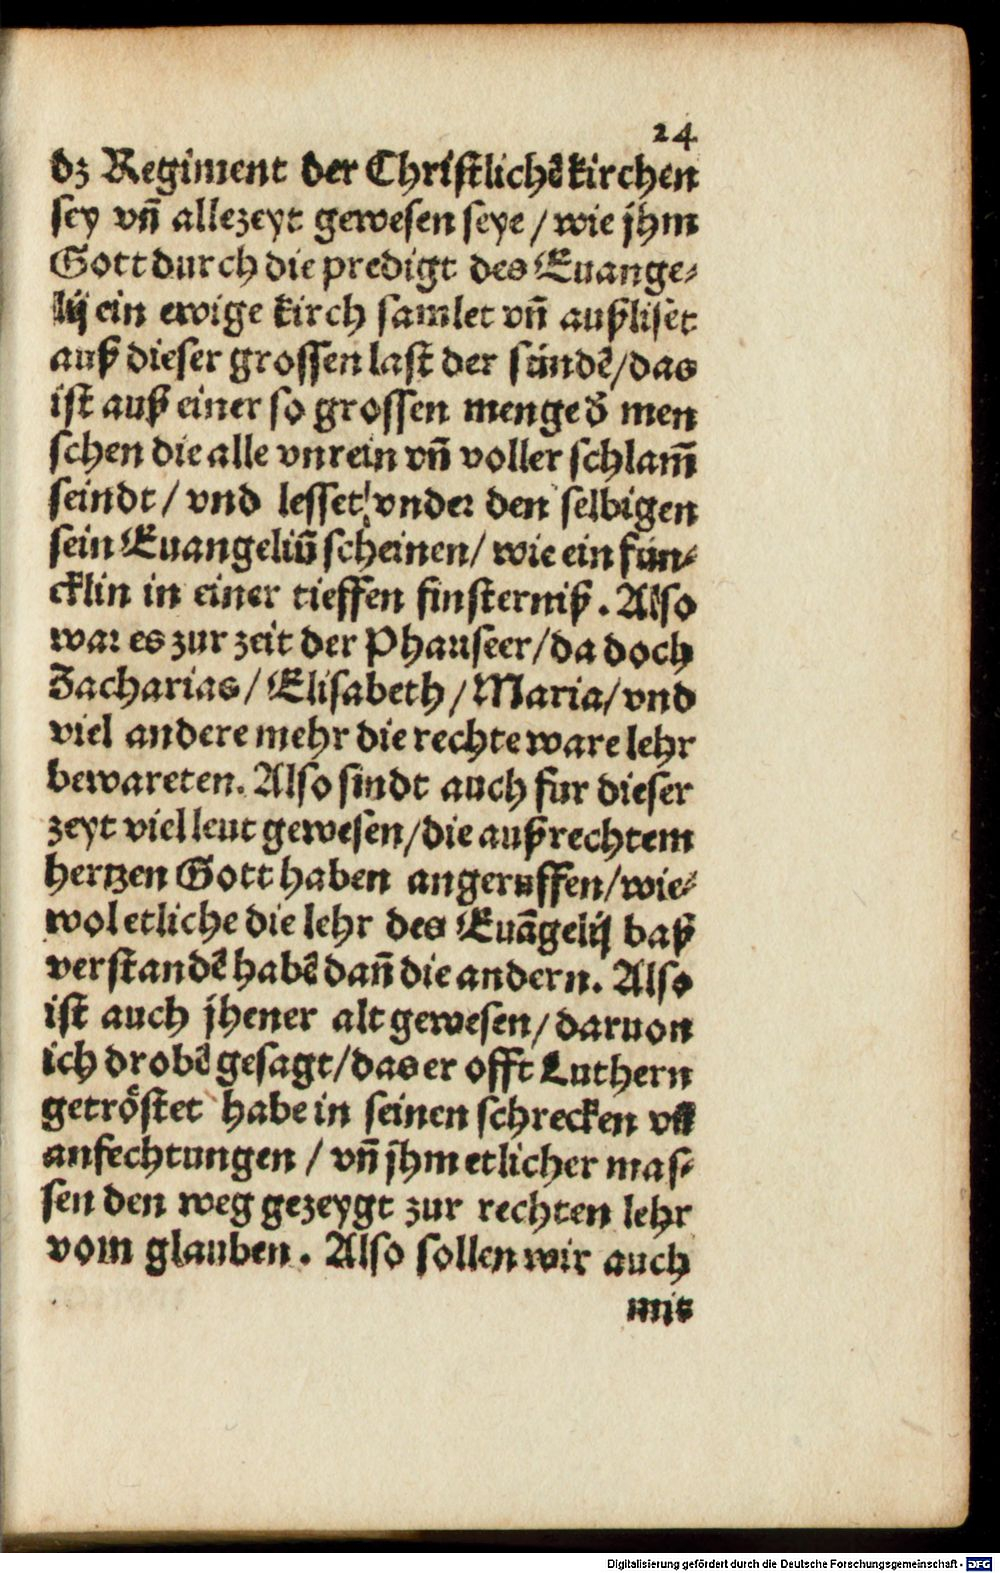 24
dz Regiment der Christlichẽ kirchen
sey vñ allezeyt gewesen seye / wie jhm
Gott durch die predigt des Euange⸗
lij ein ewige kirch samlet vñ außliset
auß dieser grossen last der sündẽ / das
ist auß einer so grossen menge d̃ men
schen die alle vnrein vñ voller schlam̃
seindt / vnd lesset vnder den selbigen
sein Euangeliũ scheinen / wie ein fün⸗
cklin in einer tieffen finsterniß. Also
war es zur zeit der Phariseer / da doch
Zacharias / Elisabeth / Maria / vnd
viel andere mehr die rechte ware lehr
bewareten. Also sindt auch fur dieser
zeyt viel leut gewesen / die auß rechtem
hertzen Gott haben angeruffen / wie⸗
wol etliche die lehr des Euãgelij baß
verstandẽ habẽ dañ die andern. Also
ist auch jhener alt gewesen / daruon
ich drobẽ gesagt / das er offt Luthern
getröstet habe in seinen schrecken vñ
anfechtungen / vñ jhm etlicher mas⸗
sen den weg gezeygt zur rechten lehr
vom glauben. Also sollen wir auch
mit
Digitalisierung gefördert durch die Deutsche Forschungsgemeinschaft - DFG